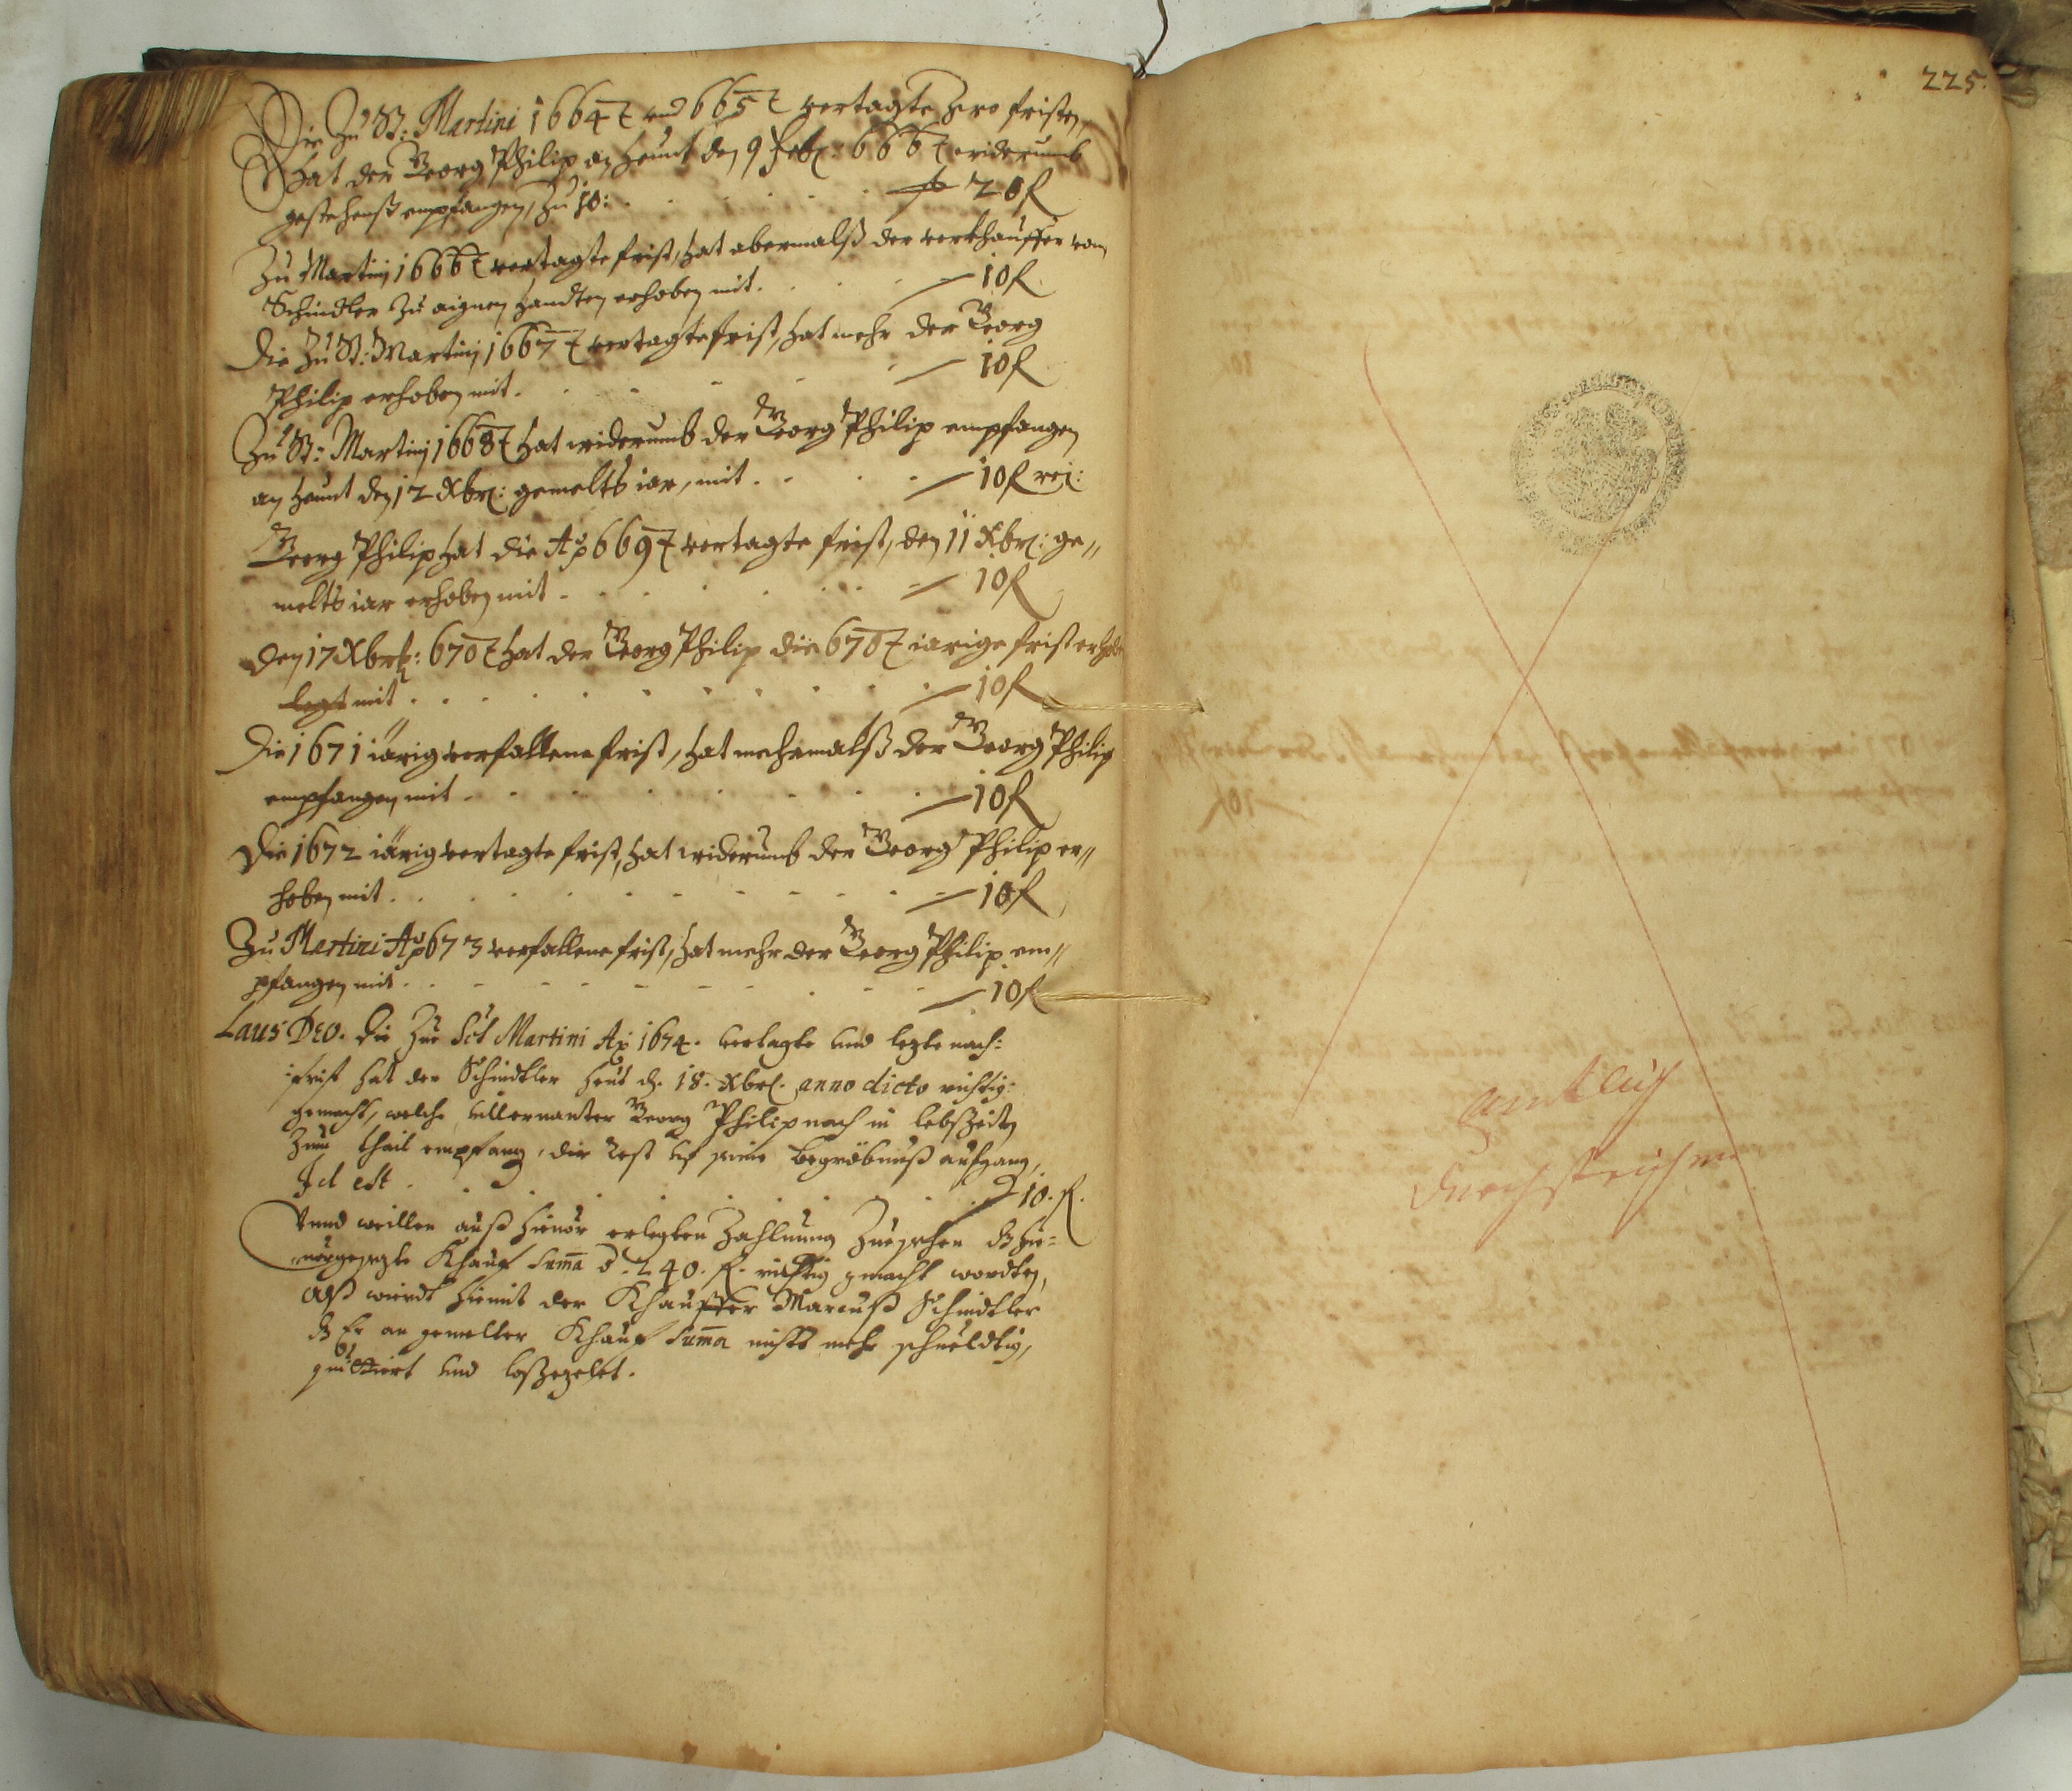 Die Zu St: Martini 1664t und 665t vertagte zwo fristen,
Hat der Georg Philip an heunt den 9 Feb: 666t widerumb
gestehenß empfangen, Zu 10: 20 f
Zu Martinj 1666t vertagte frist, hat abermalß der verkhauffer vom
Schindler Zu aignen handten erhoben mit 10 f
Die Zu St: Martinj 1667t vertagte frist, hat mehr der Georg
Philip erhoben mit 10 f
Zu St: Martinj 1668t hat widerumb der Georg Philip empfangen
an heunt den 12 Xbr: gemelts iar, mit 10 f rei:
Georg Philip hat die Ao 669t vertagte frist, den 11 Xbr: ge„
melts iar erhoben mit 10 f
Den 17 Xbr: 670t hat der Georg Philip die 670t iarige frist erhobe
legt mit 10 f
Die 1671 iärig verfallene frist, hat mehrmalß der Georg Philip
empfangen mit 10 f
Die 1672 iärig vertagte frist, hat widerumb der Georg Philip er„
hoben mit 10 f
Zu Martini Ao 673 verfallene frist, hat mehr der Georg Philip em„
pfangen mit 10 f
Laus Deo. Die Zue Sct Martini Ao 1674. vertagte und lezte nach:
frist hat der Schindtler heut d. 18. Xbr. anno dicto richtig:
gemacht, welche Georg Philip noch in lebszeiten
Zum thail empfang, die Rest uf seine begröbnuß aufgang,
Id est 10. f.
Unnd weillen auß hienor erlegten Zahlung Zuesehen dz hie=
vorgesezte Khauf Suma d. 240. f. richtig gemacht wordten,
Alß wierdt hiemit der Khauffer Marcuß Schindtler
dz Er an gemelter Khauf Suma nichts mehr schueldtig,
quittiert und loßgezelt.
225.
Amtlich
durchstrichen